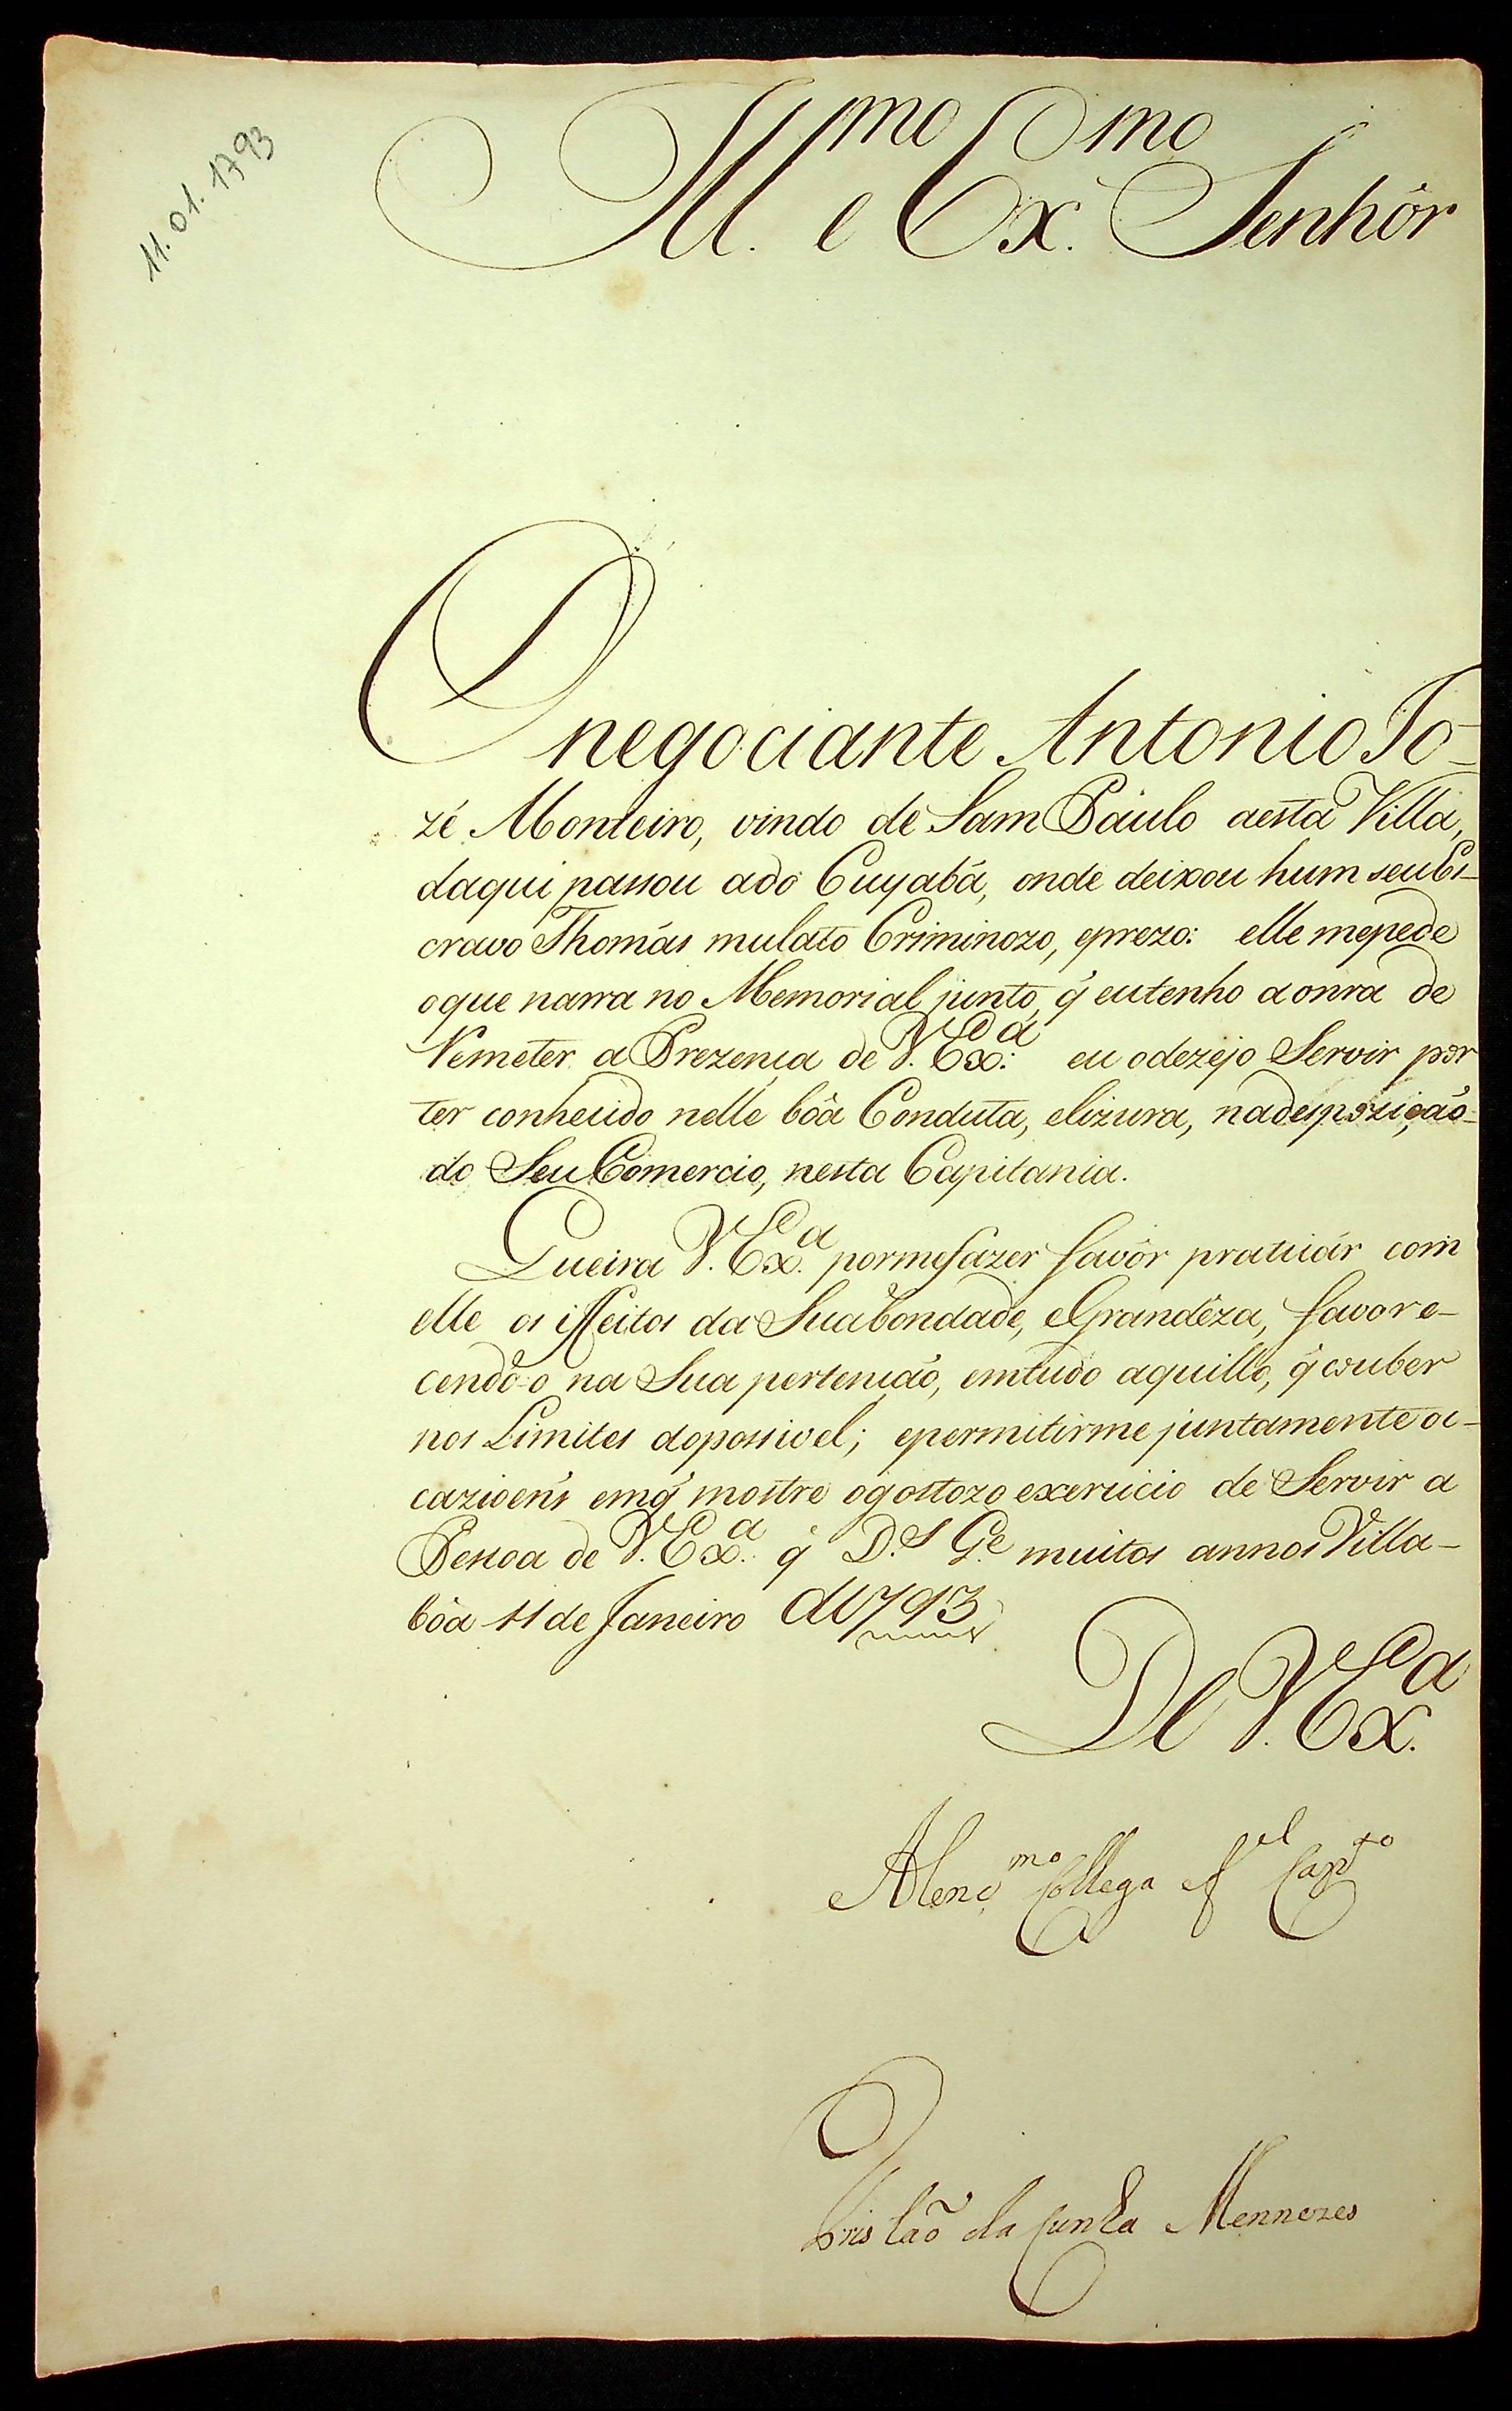 11.01.1793
Ill.mo e Ex.mo Senhôr
O negociante Antonio Jo=
zé Monteiro, vindo de Sam Páulo aesta Villa,
daqui passou ado Cuyabá, onde deixou hum seuEs=
cravo Thomás mulato Criminozo, eprezo: elle mepede
oque narra no Memorial junto, q̃ eutenho aonra de
Remeter a Prezença de V. Ex.ª: eu odezejo Servir por
ter conhecido nelle bôa Conduta, elizura, nadespozição=
do Seu Comercio, nesta Capitania.
Queira V. Ex.ª pormefazer favôr praticár com
elle os iffeitos da Suabondade, eGrandêza, favore=
cendo-o na Sua pertenção, emtudo aquillo, q̃ couber
nos Limites dopossivel; epermitirme juntamente oc=
cazioens emq̃ mostre ogostozo exercicio de Servir a
Pessoa de V. Ex.ª q̃ D.s G.e muitos annos Villa=
bôa 11 de Janeiro de 1793
De V. Ex.ª
Atenc.mo Collega e f.el Cap.to
Tristaõ da Cunha Mennezes